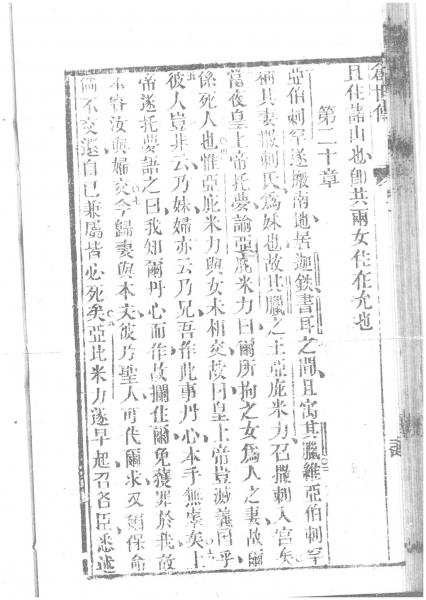 創世傳
且住諸山也卽其兩女住在穴也
第二十章
亞伯剌罕遂搬南地居迦鉄書耳之間且寓其臘維亞伯剌罕
稱其妻撒剌氏爲妹也故其臘之王亞庇米力召撒剌入宮矣
當夜皇上帝托夢諭亞庇米力曰爾所拘之女爲人之妻故爾
係死人也惟亞庇米力與女未相交故曰皇上帝豈滅義囯乎
彼人豈非云乃妹婦亦云乃兄吾作此事丹心本手無辜矣上
帝遂托夢語之曰我知爾丹心而作故攔住爾免獲罪於我故
不容汝與婦交今歸妻與本夫彼乃聖人可代爾求又爾保命
倘不交還自己兼屬皆必死矣亞比米力遂早起召各臣悉述